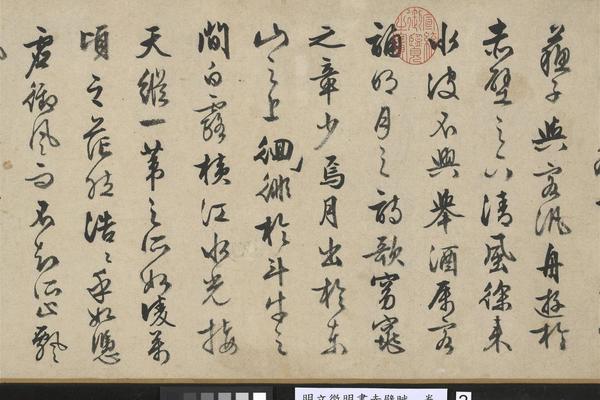 蘇子與客汎舟遊於
赤壁之下清風徐來
水波不興舉酒屬客
誦明月之詩歌窈窕
之章少焉月出於東
山之上徊徘於斗牛之
間白露橫江水光接
天縱一葦之所如凌萬
頃之茫然浩〻乎如憑
虛御風而不知所止飄
宣統御覽之寶
明文徵明書赤壁賦 卷